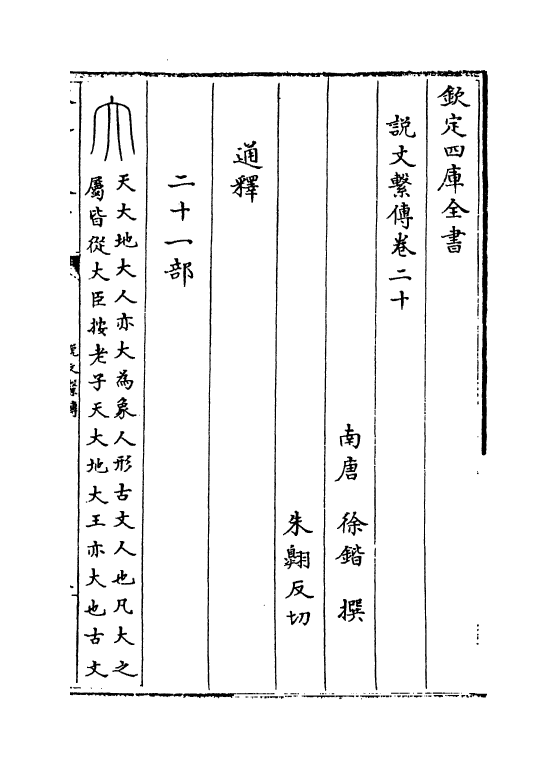 欽定四庫全書
說文繫傳卷二十
南唐 徐鍇 撰
朱翺反切
通釋
二十一部
天大地大人亦大為象人形古文人也凡大之
屬皆從大臣按老子天大地大王亦大也古文
說文繫傳